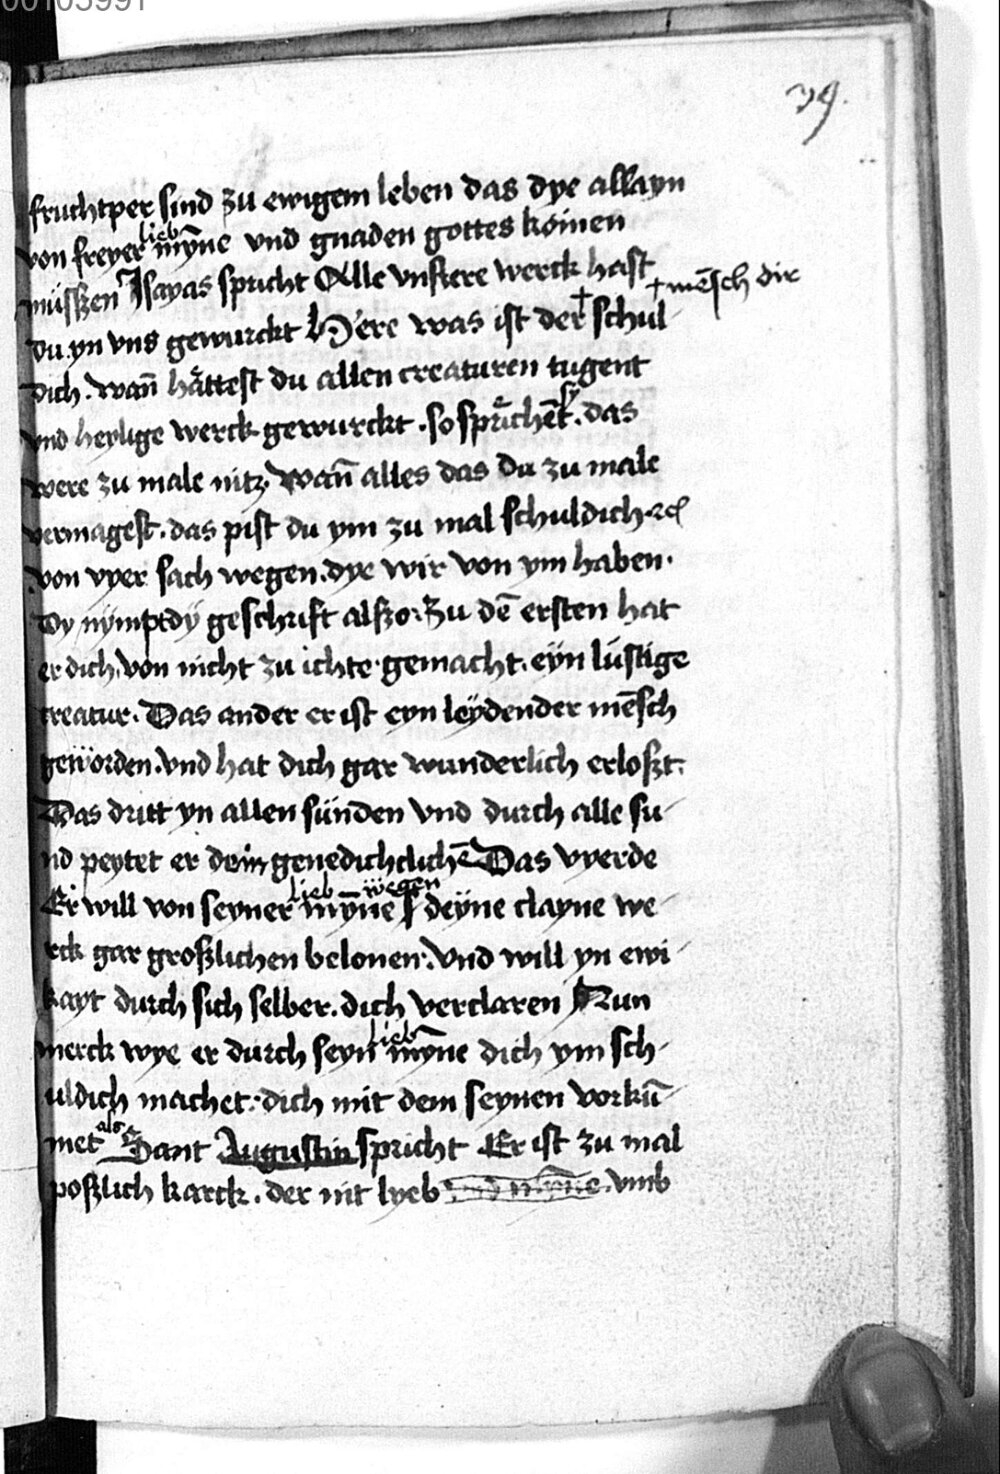 00103991
39.
fruchtper sind zu ewigem leben das dye allayn
von freyer lieb mỹne vnd gnaden gottes komen
müsszen Jsayas spricht Alle vnsere werck hast
† mēsch dir
du yn vns gewurckt Here was ist der † schul-
dich . wan̄ hättest du allen creaturen tugent
vnd heylige werck gewurckt . so sprächēt sy . das
were zu male nitz. wan̄ alles das du zu male
vermagest . das pist du ym zu mal schuldich
von vyer sach wegen . dye wir von ym haben .
Dy nÿmpt dÿ geschrift alszo : Zu dē ersten hat
er dich von nicht zu ichte gemacht . eÿn lüstige
creatur . Das ander er ist eyn leÿdender mēsch
geworden . vnd hat dich gar wunderlich erloszt :
Das dritt yn allen sünden vnd durch alle su-
nd peytet er dein genedichclichē Das vyerde
Er will von seyner lieb mỹne wegen deÿne clayne we-
rck gar groszlichen belonen : vnd will yn ewi-
kayt durch sich selber . dich verclaren Nun
merck wye er durch seyn lieb mỹne dich ym sch-
uldich machet : dich mit dem seynen vorkū-
met als Sant Augustin spricht Er ist zu mal
poszlich karck . der nit lyeb vnd mỹne . vmb